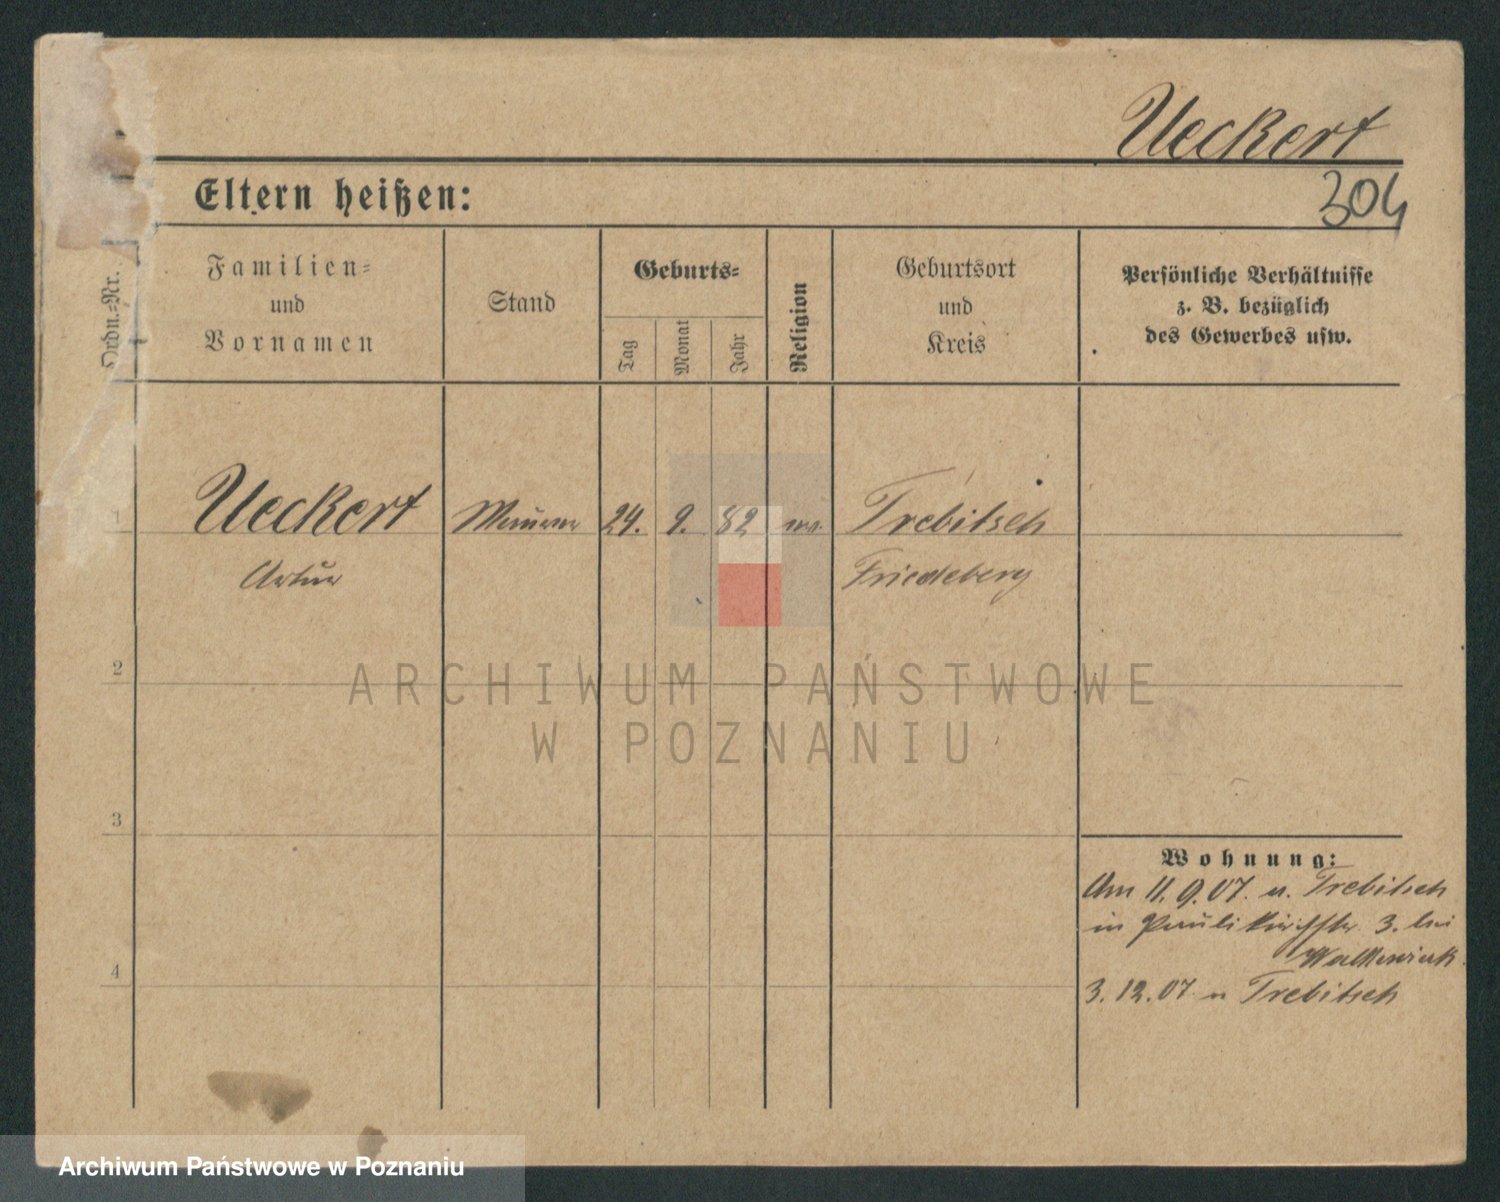 Ueckert
304
Eltern heißen:
Ordn.-Nr.
Familien-
und
Vornamen
Stand
Geburts-
Tag
Monat
Jahr
Religion
Geburtsort
und
Kreis
Persönliche Verhältnisse
z. B. bezüglich
des Gewerbes usw.
1 Ueckert Maurer 24. 9. 82 Trebitsch
Artur Friedeberg
2
3
4
Wohnung:
Am 11.9.07. Trebitsch
in Paulikirchstr. 3. bei
3.12.07 n Trebitsch
ARCHIWUM PAŃSTWOWE
W POZNANIU
Archiwum Państwowe w Poznaniu